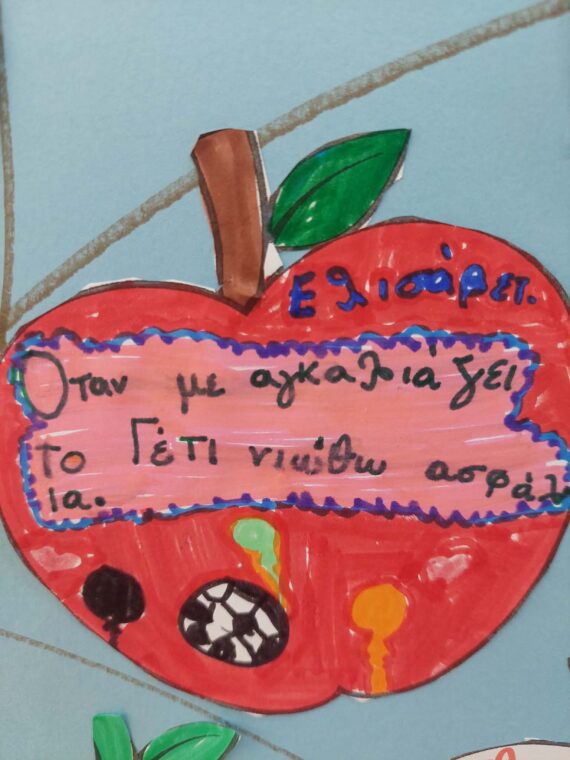 Ελισάβετ.
Όταν με αγκαλιάζει
το Γέτι νιώθω ασφάλ
ια.